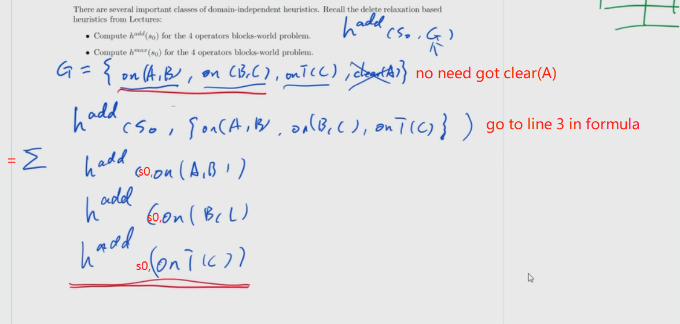 There are several important classes of domain-independent heuristics. Recall the delete relaxation based
heuristics from Lectures:
h^add (s0, G)
• Compute h^add(s0) for the 4 operators blocks-world problem.
• Compute h^max(s0) for the 4 operators blocks-world problem.
G = { on(A,B), on(B,C), onT(C), clear(A)} no need got clear(A)
h^add (s0, {on(A,B), on(B,C), onT(C)}) go to line 3 in formula
= Σ h^add (s0,on(A,B))
h^add (s0,on(B,C)
h^add s0,(onT(C))